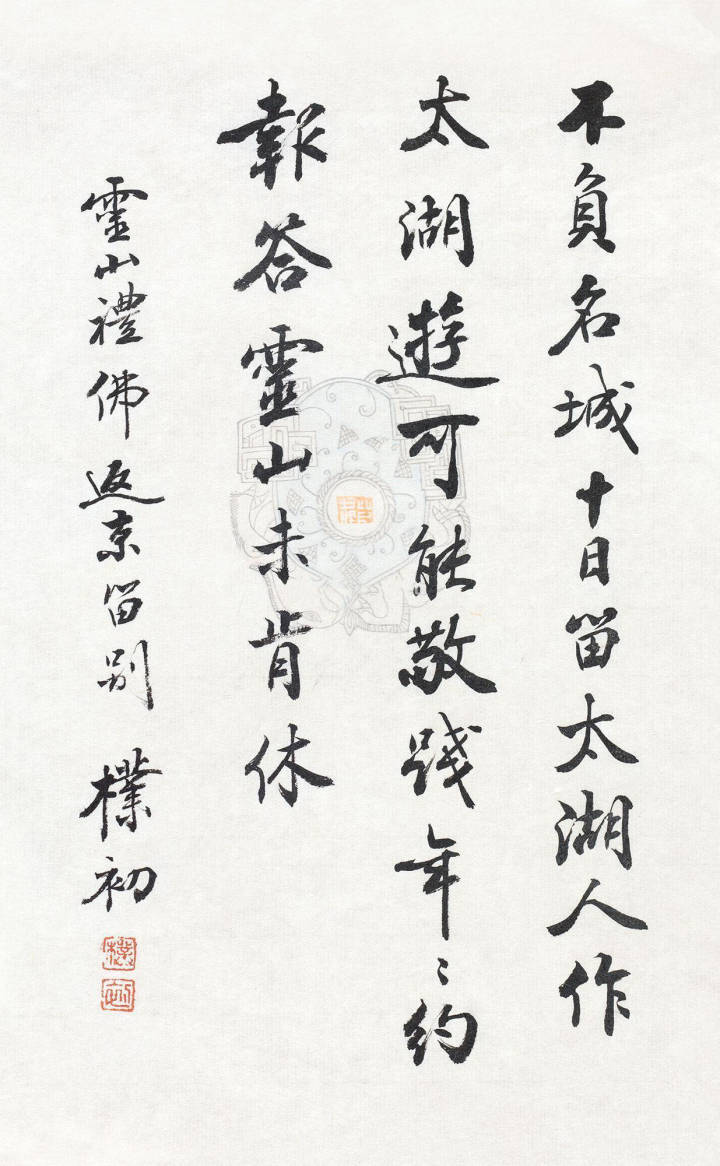 不負名城十日留太湖人作
太湖遊可能敬踐年〻約
報答靈山未肯休
靈山禮佛返京留别 樸初
樸
初